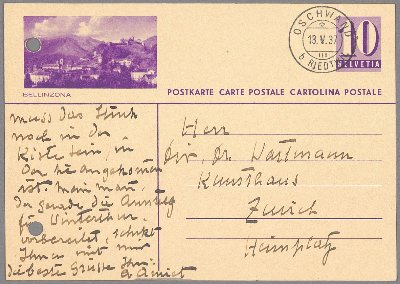 BELLINZONA
OSCHWAND
13. V. 37
b. RIEDTWIL
10
HELVETIA
POSTKARTE CARTE POSTALE CARTOLINA POSTALE
muss das Stück
noch in der
Kiste sein, in
der sie angekommen
ist man man.
Da gerade die Ausstlg
für Winterthur
vorbereitet, schickt
Ihnen mit nur
die beste Grüsse Ihr
C Amiet
Herr
Dir. Dr. Wartmann
Kunsthaus
Zürich
Heimplatz